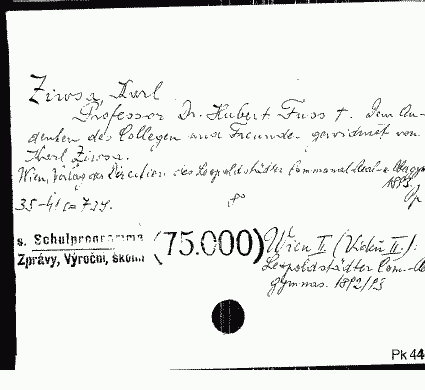 Ziwsa, Karl
Professor Dr. Hubert Fuss †. Dem An-
denken des Collegen und Freundes gewidmet von
Karl Ziwsa.
Wien, Verlag der Direction des Leopoldstädter Communal-Real- u. Obergym
1893.
35-41 S = 729.
s. Schulprogramme (75.000) Wien II. (Vídeň II.):
Zprávy, Výroční, školní Leopoldstädter Com.-
Gymnas. 1892/93
Pk 44